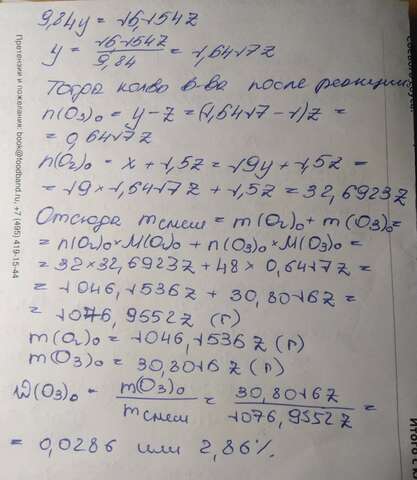 9,84y = 16,154z
y = 16,154z / 9,84 = 1,6417z
Тогда кол-во в-ва после реакции
n(O3)₀ = y - z = (1,6417 - 1)z =
= 0,6417z
n(O2)₀ = x + 1,5z = 19y + 1,5z =
= 19 × 1,6417z + 1,5z = 32,6923z
Отсюда mсмеси = m(O2)₀ + m(O3)₀ =
= n(O2)₀ × M(O2)₀ + n(O3)₀ × M(O3)₀ =
= 32 × 32,6923z + 48 × 0,6417z =
= 1046,1536z + 30,8016z =
= 1076,9552z (г)
m(O2)₀ = 1046,1536z (г)
m(O3)₀ = 30,8016z (г)
W(O3)₀ = m(O3)₀ / mсмеси = 30,8016z / 1076,9552z =
= 0,0286 или 2,86%.
Претензии и пожелания: book@foodband.ru, +7 (495) 419-15-44